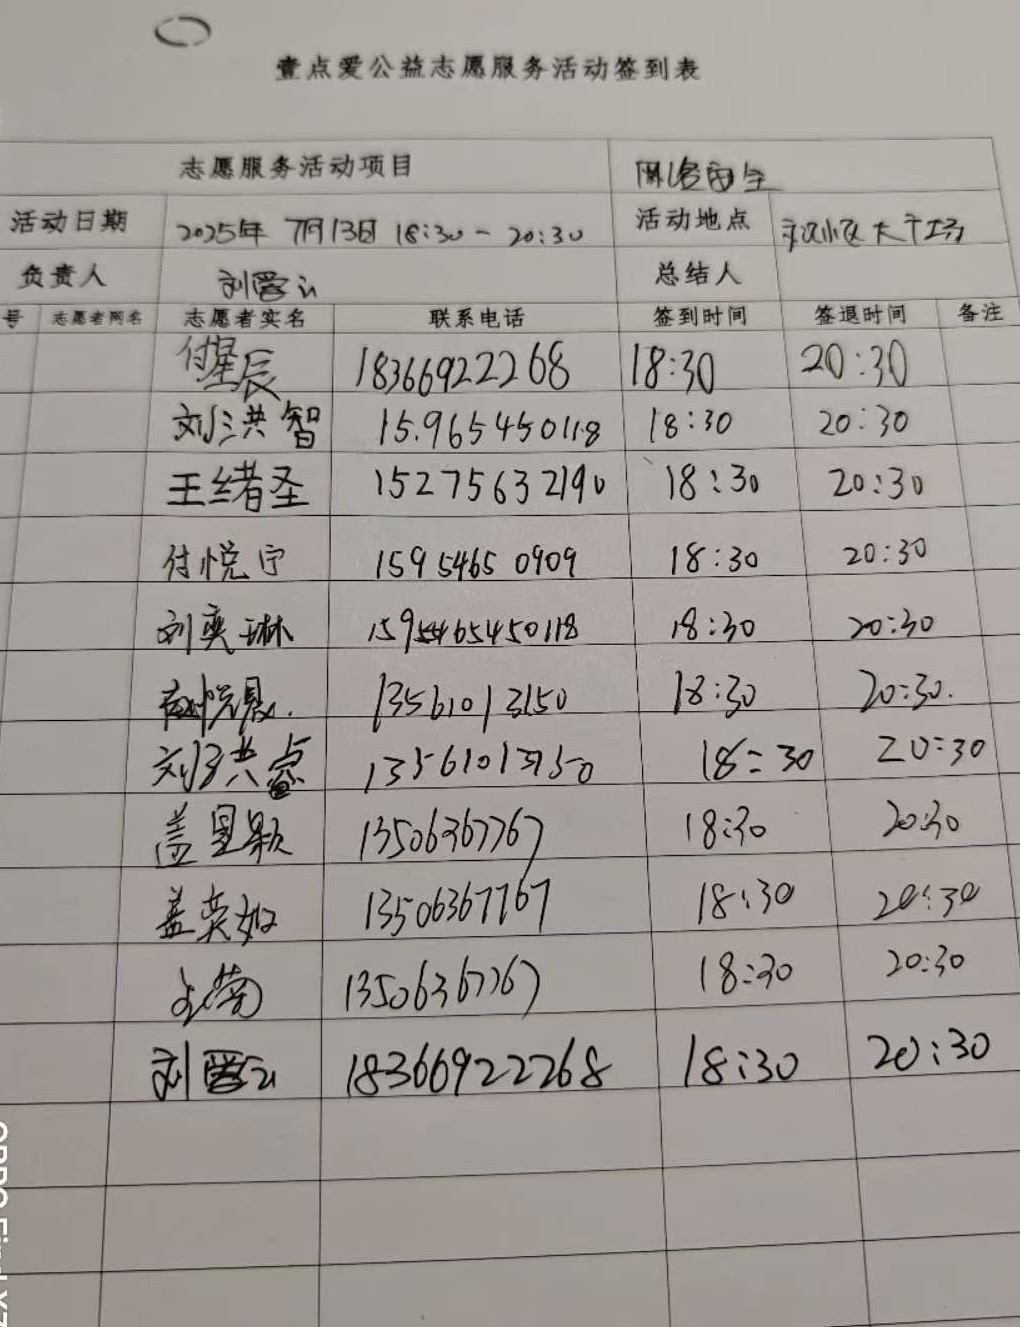 壹点爱公益志愿服务活动签到表
志愿服务活动项目
活动日期 2025年 7月13日 18:30-20:30 活动地点
负责人 刘 总结人
号 志愿者网名 志愿者实名 联系电话 签到时间 签退时间 备注
付星辰 18366922268 18:30 20:30
刘洪智 15.965450118 18:30 20:30
王绪圣 15275632190 18:30 20:30
付悦宁 15954650909 18:30 20:30
刘奕琳 18:30 20:30
13561013150 18:30 20:30.
刘洪 18:30 20:30
盖星颖 13506367767 18:30 20:30
盖奕如 13506367767 18:30 20:30
13506367767 18:30 20:30
刘 18366922268 18:30 20:30
OPPO Find X7